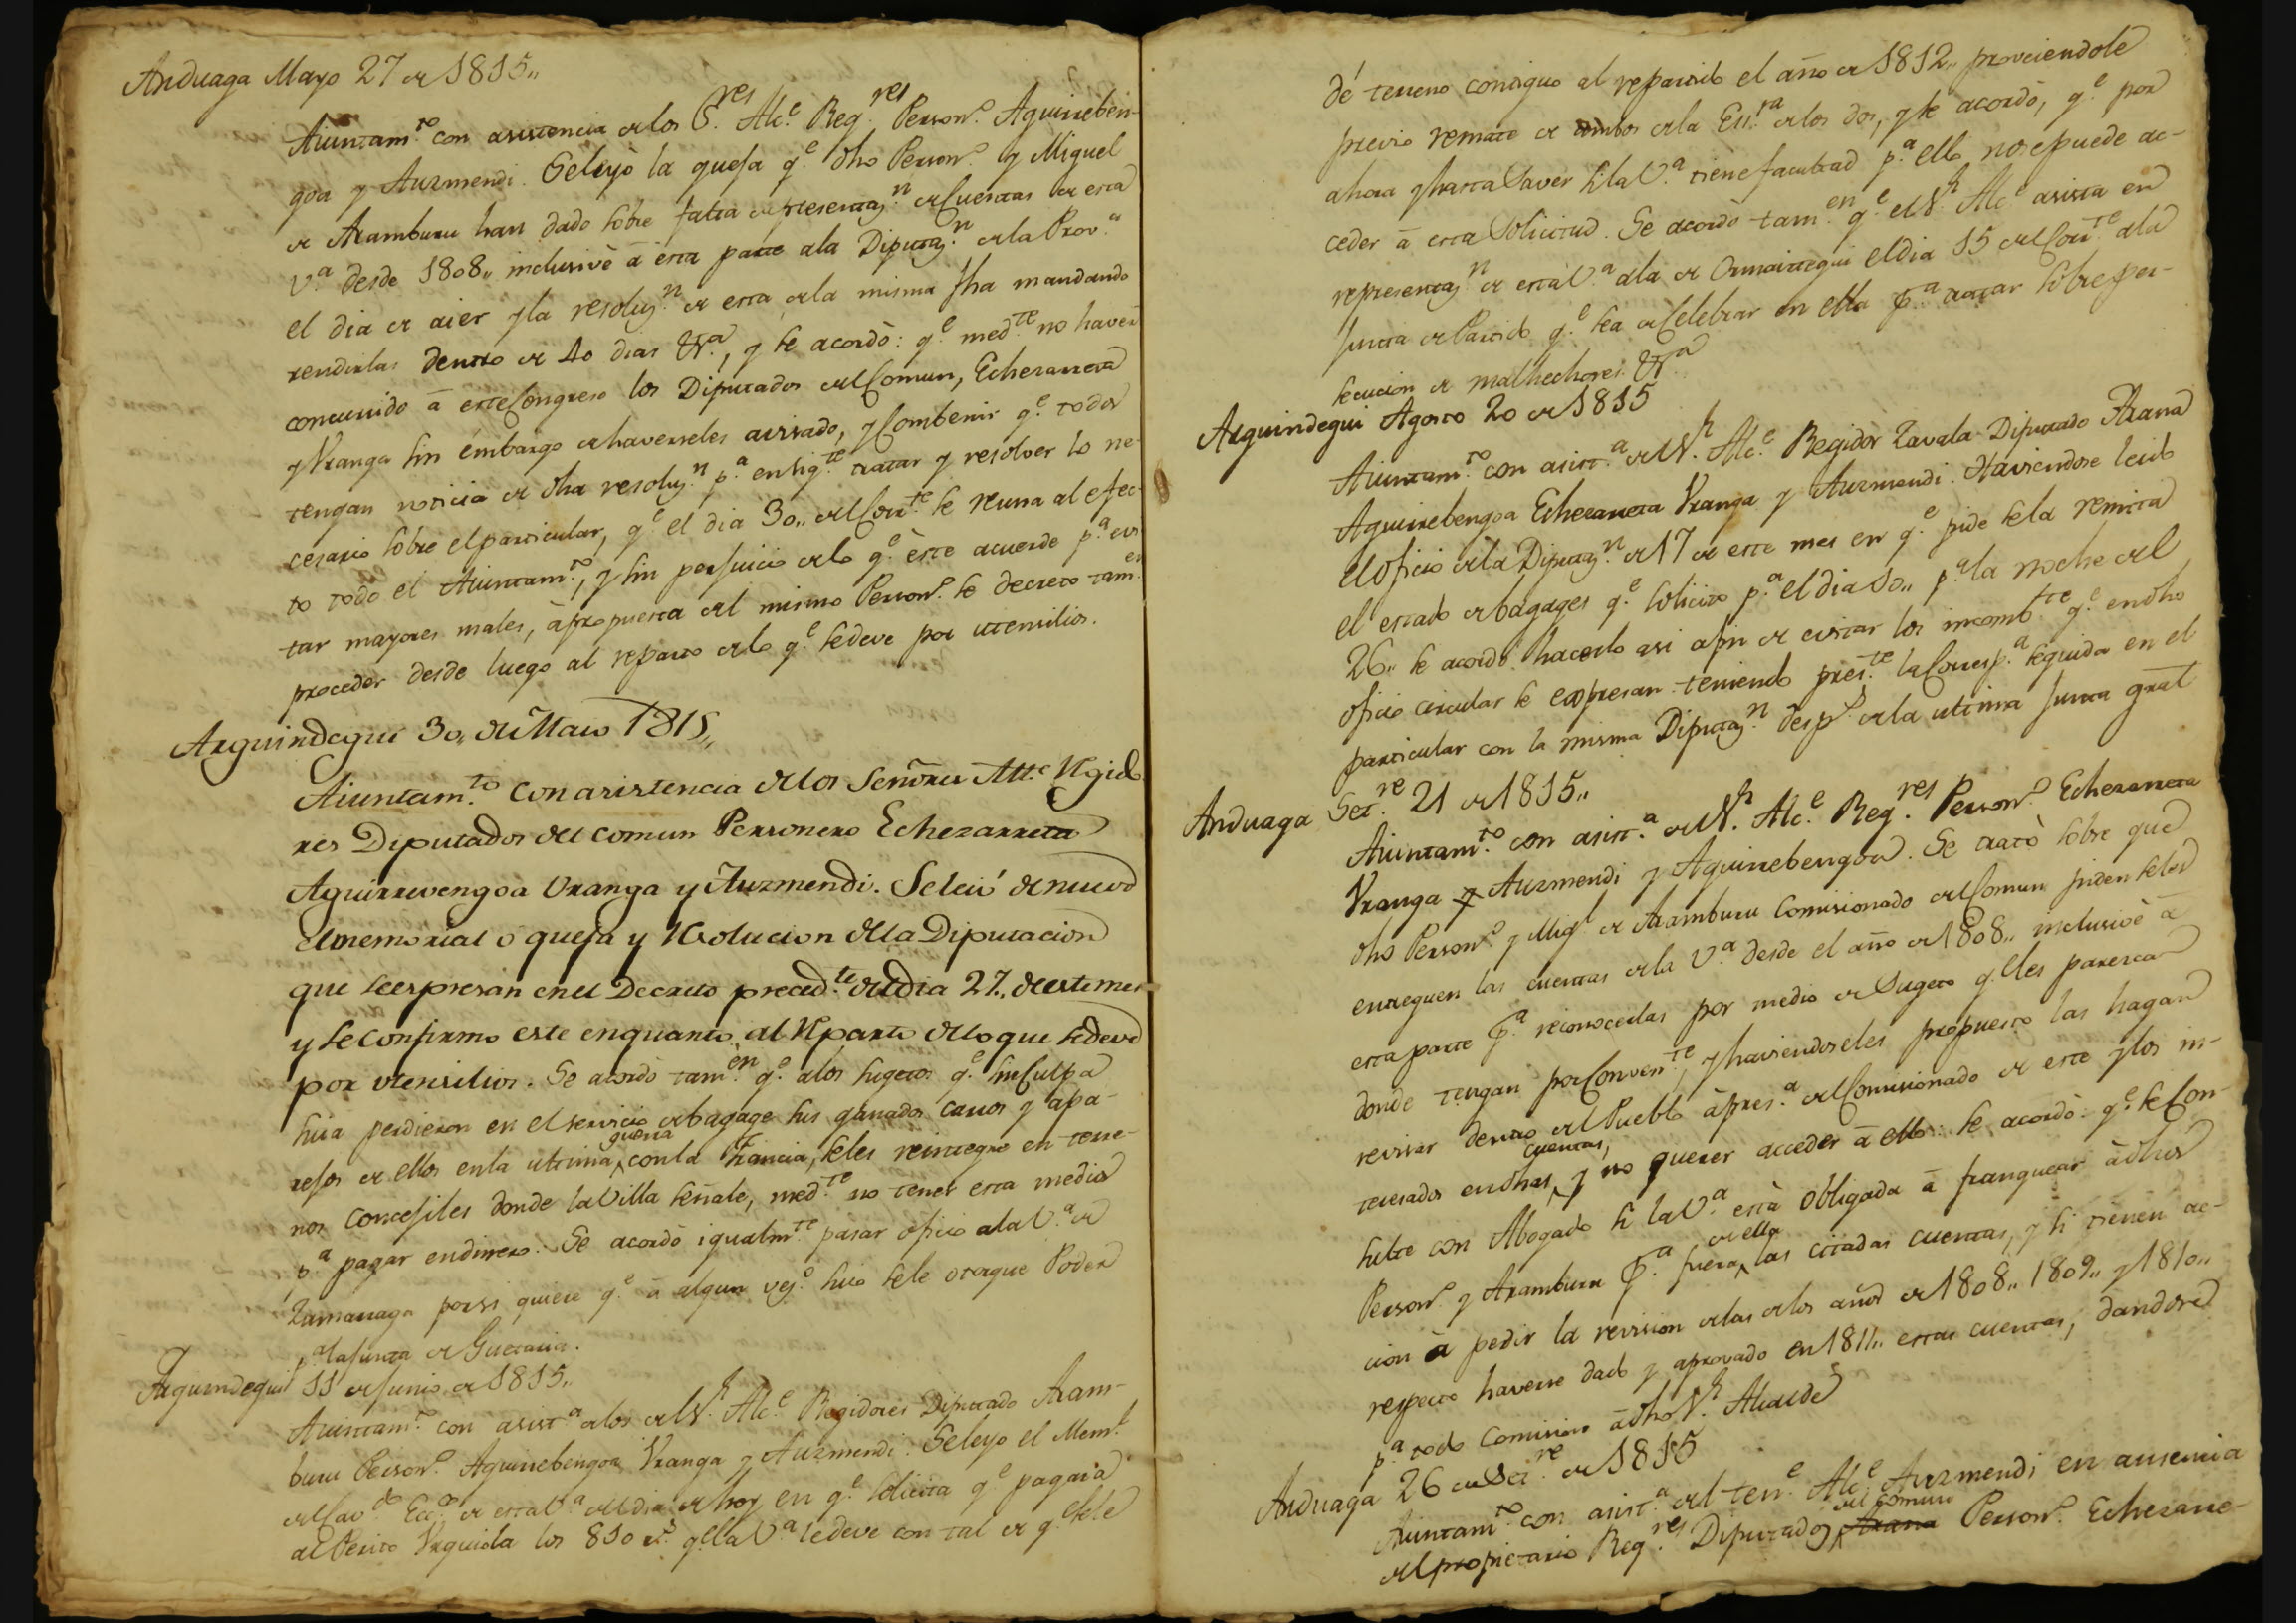 Anduaga Mayo 27 de 1815,,
Aiuntam.to con asistencia de los S.res Alc.e Reg.res Person.o Aguirreben-
goa y Auzmendi. Se leyò la queja q.e dho Person.o y Miguel
de Aramburu han dado sobre falta de presentaz.n de Cuentas de esta
V.a desde 1808,, inclusivè â esta parte ala Diputaz.n de la Prov.a
el dia de aier y la resoluz.n de esta de la misma fha mandando
rendirlas dentro de 40 dias &.a, y se acordò: q.e med.te no haver
concurrido â este Congreso los Diputados del Comun, Echezarreta
y Vranga sin embargo de haverseles avisado, y Combenir q.e todos
tengan noticia de dha resoluz.n p.a en sig.te tratar y resolver lo ne-
cesario sobre el particular, q.e el dia 30,, del Corr.te se reuna al efec-
to todo el Aiuntam.to, y sin perjuicio de lo q.e èste acuerde p.a evi
tar mayores males, à propuesta del mismo Person.o se decreto tam.en
proceder desde luego al reparto de lo q.e se deve por utensilios.
Arguindegui 30,, de Maio 1815,,
Aiuntam.to con asistencia de los Señores Alc.e Regido
res Diputados del comun Personero Echezarreta
Aguirrevengoa Vranga y Auzmendi. Se leió de nuevo
el memorial ò queja y Resolucion de la Diputacion
que se espresan en el Decreto preced.te del dia 27,, de este mes
y se confirmo este en quanto al Reparto de lo que se deve
por utensilios. Se acordò tam.en q.e a los sugetos q.e sin Culpa
suia perdieron en el servicio de bagage sus ganados carros y apa-
rejos de ellos en la ultima guerra con la Francia, se les reintegre en terre-
nos concejiles donde la Villa señale, med.te no tener esta medios
p.a pagar en dinero. Se acordò igualm.te pasar oficio a la V.a de
Zumarraga por si quiere q.e a algun vez.o suio se le otorgue Poder
p.a la Junta de Guetaria.
Arguindegui 11 de Junio de 1815,,
Aiuntam.to con asist.a de los del S.r Alc.e Regidores Diputado Aram-
buru Person.o Aguirrebengoa Vranga y Auzmendi. Se leyo el Mem.l
del Cav.do Ecc.o de esta V.a del dia de hoy en q.e solicita q.e pagaria
al Perito Vrquiola los 810 r.s q.e la V.a le deve con tal de q.e se le
dé terreno contiguo al repartido el año de 1812,, proveiendole
previo remate de ambos de la Ess.ra de los dos, y se acordò, q.e por
ahora y hasta saver si la V.a tiene facultad p.a ello no se puede ac-
ceder â esta Solicitud. Se acordò tam.en q.e el S.r Alc.e asista en
representaz.n de esta V.a a la de Ormaiztegui el dia 15 del Corr.te a la
Junta de Partido q.e sea de Celebrar en ella p.a tratar sobre per-
secucion de malhechores &.a
Arguindegui Agosto 20 de 1815
Aiuntam.to con asist.a del S.r Alc.e Regidòr Zavala Diputado Arana
Aguirrebengoa Echezarreta Vranga y Auzmendi. Haviendose leido
el oficio de la Diputaz.n de 17 de este mes en q.e pide se la remita
el estado de bagages q.e solicito p.a el dia 10,, p.a la noche del
26,, se acordò hacerlo asi a fin de evitar los incomb.tes q.e en dho
oficio circular se expresan teniendo pres.te la Corresp.a seguida en el
particular con la misma Diputaz.n desp.s de la ultima Junta gral
Anduaga Set.re 21 de 1815,,
Aiuntam.to con asist.a del S.r Alc.e Reg.res Person.o Echezarreta
Vranga y Auzmendi y Aguirrebengoa. Se tratò sobre que
dho Person.o y Mig.l de Aramburu Comisionado del Comun piden se les
entreguen las cuentas de la V.a desde el año de 1808,, inclusivè â
esta parte p.a reconocerlas por medio de Sugeto q.e les parezca
donde tengan por Conven.te, y haviendoseles propuesto las hagan
revisar dentro del Pueblo à pres.a del Comisionado de este y los in-
teresados en dhas cuentas, y no querer acceder â ello: se acordò: q.e se Con-
sulte con Abogado si la V.a està obligada â franquear à dhos
Person.o y Aramburu p.a fuera de ella las citadas cuentas, y si tienen ac-
cion â pedir la revision de las de los años de 1808,, 1809,, y 1810,,
respecto haverse dado y aprovado en 1811,, estas cuentas, dandose
p.a todo Comision â dho S.r Alcalde
Anduaga 26 de Set.re de 1815
Aiuntam.to con asist.a del ten.e Alc.e Auzmendi en ausencia
del propietario Reg.res Diputados del comun Arana Person.o Echezarre-